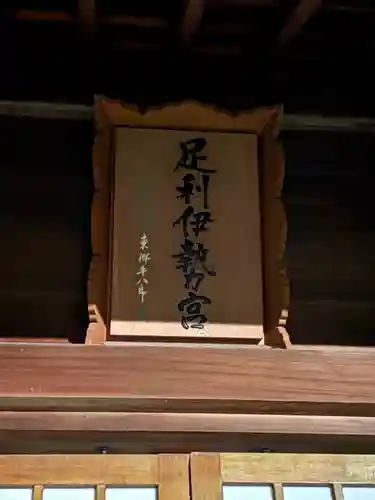 足利伊勢宮
東郷平八郎